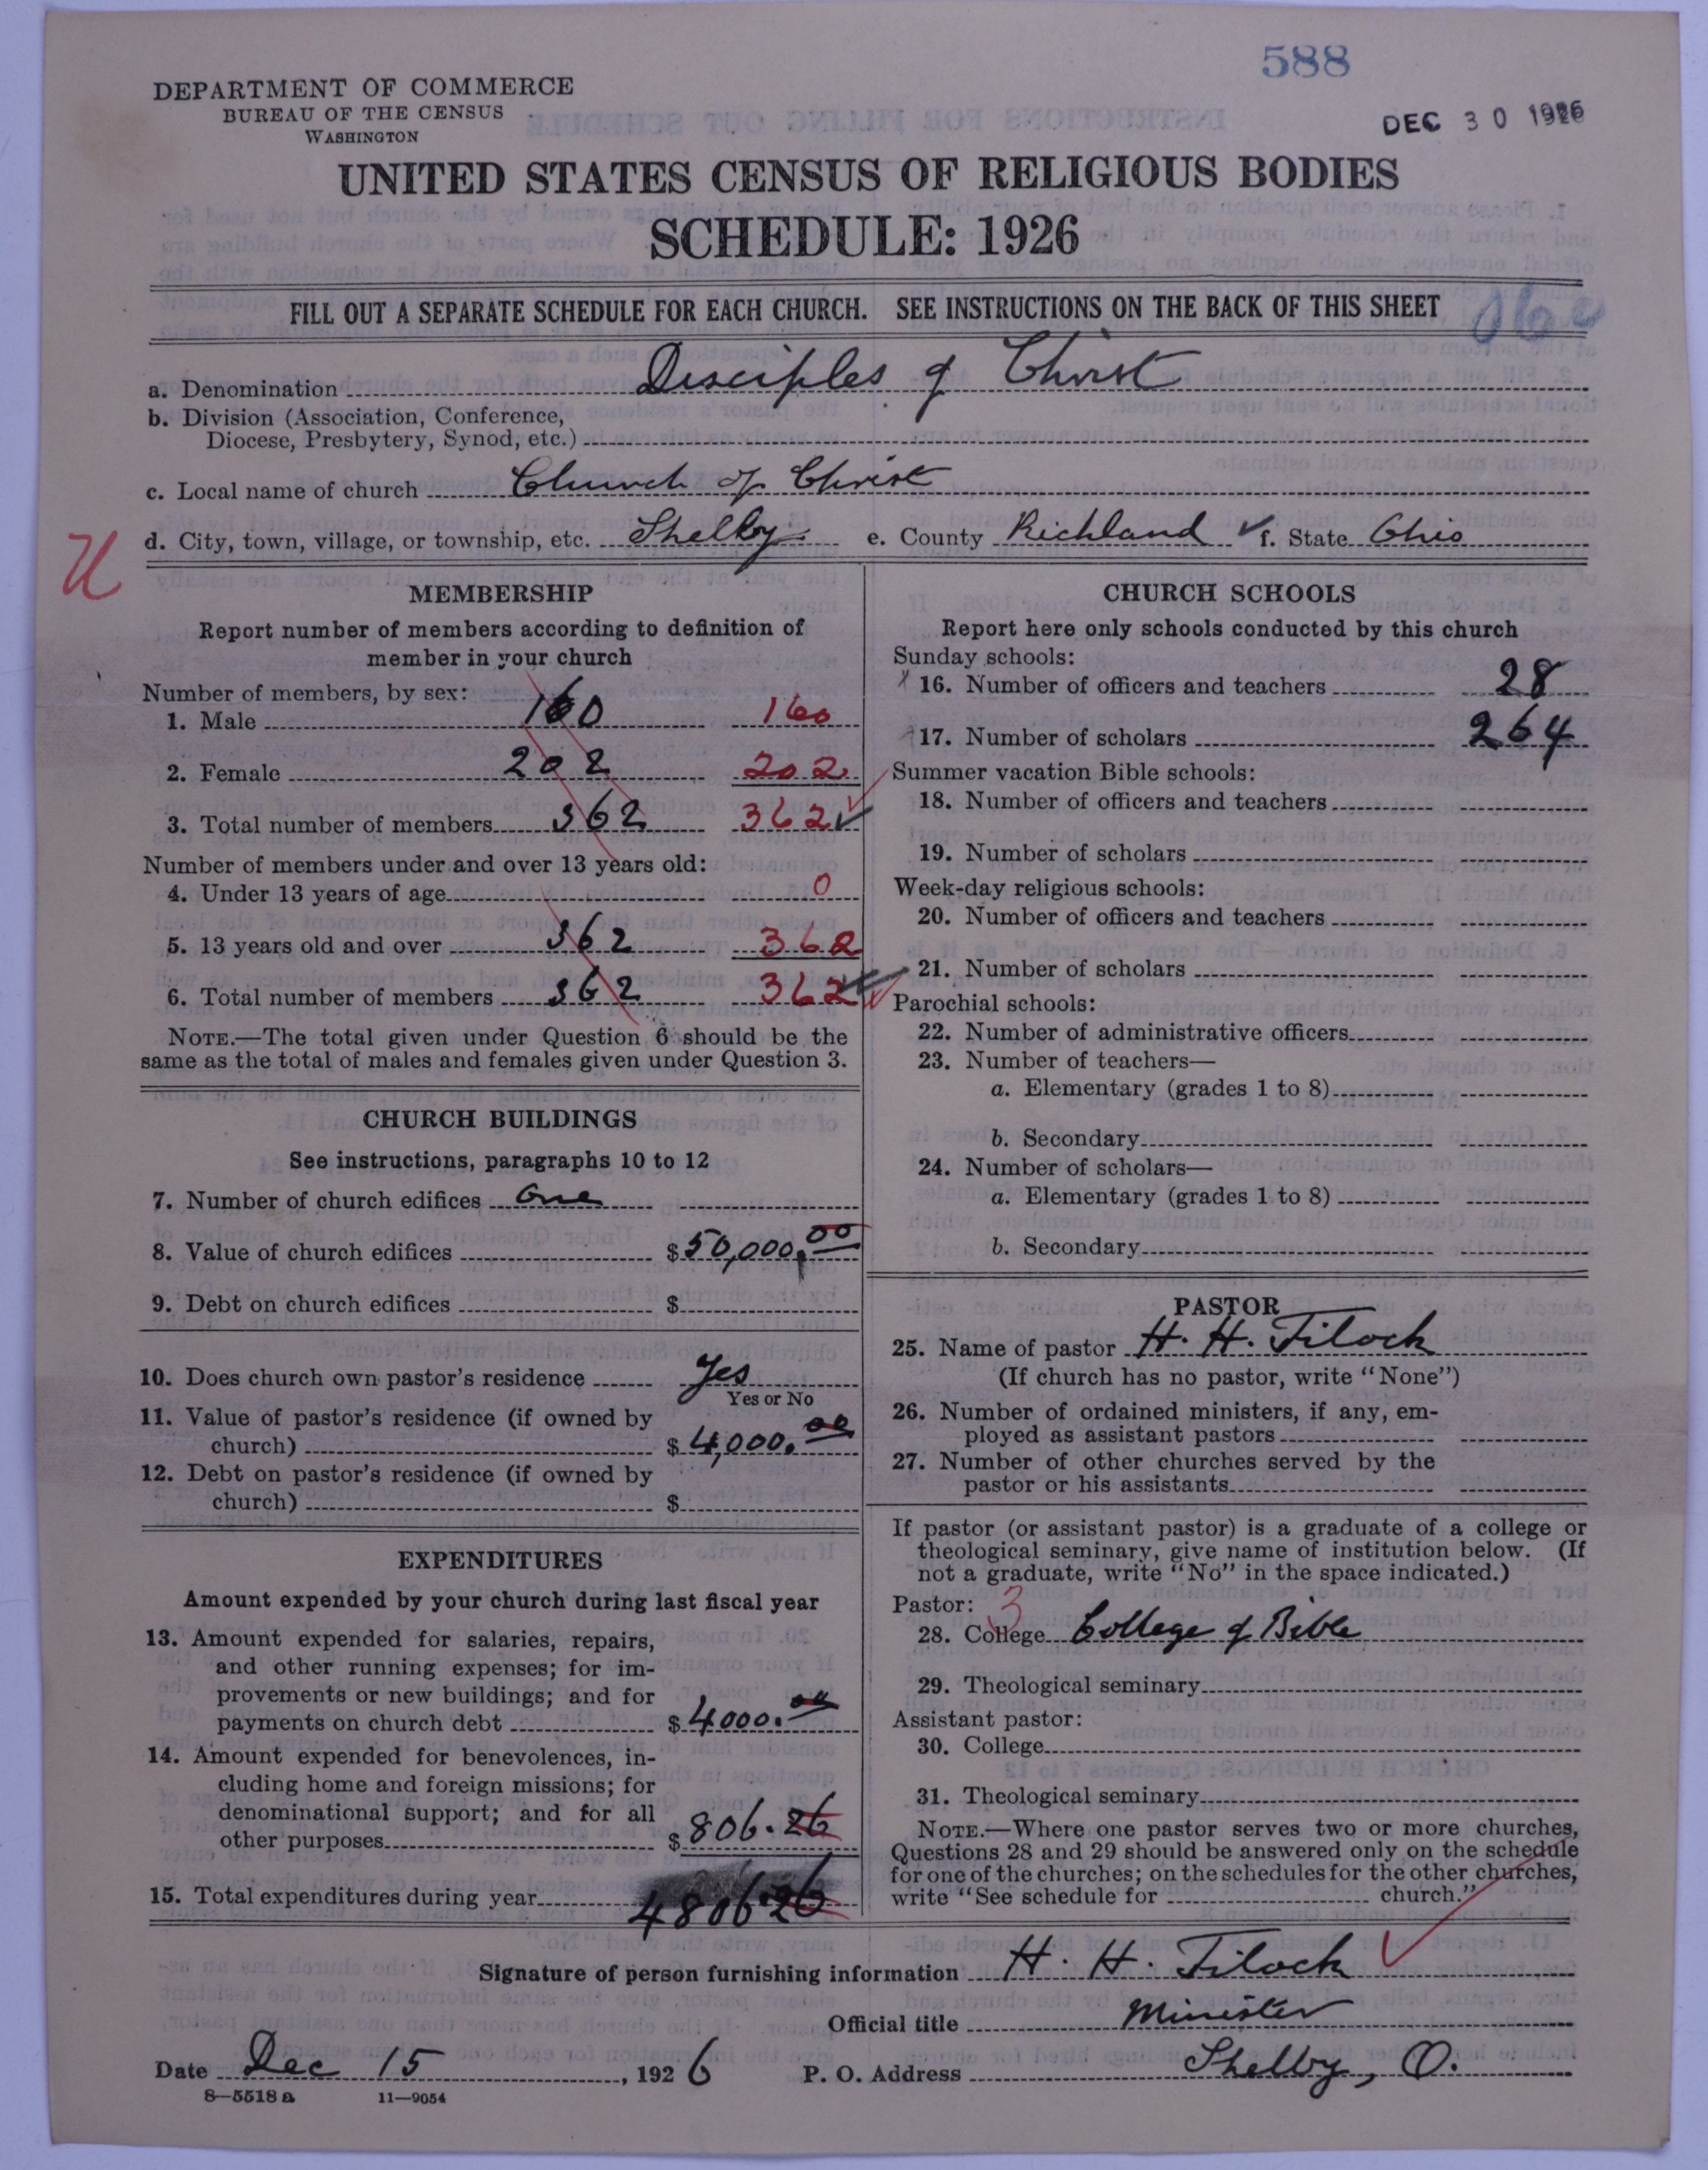 588
DEPARTMENT OF COMMERCE
BUREAU OF THE CENSUS
WASHINGTON
DEC 30 1926
UNITED STATES CENSUS OF RELIGIOUS BODIES
SCHEDULE: 1926
FILL OUT A SEPARATE SCHEDULE FOR EACH CHURCH. SEE INSTRUCTIONS ON THE BACK OF THIS SHEET
a. Denomination Disciples of Christ
b. Division (Association, Conference,
Diocese, Presbytery, Synod, etc.)
c. Local name of church Church of Christ
d. City, town, village, or township, etc. Shelby e. County Richland ✓ f. State Ohio
U
MEMBERSHIP
Report number of members according to definition of
member in your church
Number of members, by sex:
1. Male 160 160
2. Female 202 202
3. Total number of members 362 362 ✓
Number of members under and over 13 years old:
4. Under 13 years of age 0
5. 13 years old and over 362 362
6. Total number of members 362 362 ✓
NOTE.—The total given under Question 6 should be the
same as the total of males and females given under Question 3.
CHURCH BUILDINGS
See instructions, paragraphs 10 to 12
7. Number of church edifices One
8. Value of church edifices $50,000.00
9. Debt on church edifices $
10. Does church own pastor's residence Yes
Yes or No
11. Value of pastor's residence (if owned by
church) $4,000.00
12. Debt on pastor's residence (if owned by
church) $
EXPENDITURES
Amount expended by your church during last fiscal year
13. Amount expended for salaries, repairs,
and other running expenses; for im-
provements or new buildings; and for
payments on church debt $4000.00
14. Amount expended for benevolences, in-
cluding home and foreign missions; for
denominational support; and for all
other purposes $806.26
15. Total expenditures during year 4806.26
CHURCH SCHOOLS
Report here only schools conducted by this church
Sunday schools:
16. Number of officers and teachers 28
17. Number of scholars 264
Summer vacation Bible schools:
18. Number of officers and teachers
19. Number of scholars
Week-day religious schools:
20. Number of officers and teachers
21. Number of scholars
Parochial schools:
22. Number of administrative officers
23. Number of teachers—
a. Elementary (grades 1 to 8)
b. Secondary
24. Number of scholars—
a. Elementary (grades 1 to 8)
b. Secondary
PASTOR
25. Name of pastor H. H. Tilock
(If church has no pastor, write "None")
26. Number of ordained ministers, if any, em-
ployed as assistant pastors
27. Number of other churches served by the
pastor or his assistants
If pastor (or assistant pastor) is a graduate of a college or
theological seminary, give name of institution below. (If
not a graduate, write "No" in the space indicated.)
Pastor: 3
28. College College of Bible
29. Theological seminary
Assistant pastor:
30. College
31. Theological seminary
NOTE.—Where one pastor serves two or more churches,
Questions 28 and 29 should be answered only on the schedule
for one of the churches; on the schedules for the other churches,
write "See schedule for church."
Signature of person furnishing information H. H. Tilock
Official title Minister
Date Dec 15, 1926 P. O. Address Shelby, O.
8—5518 a 11—9054